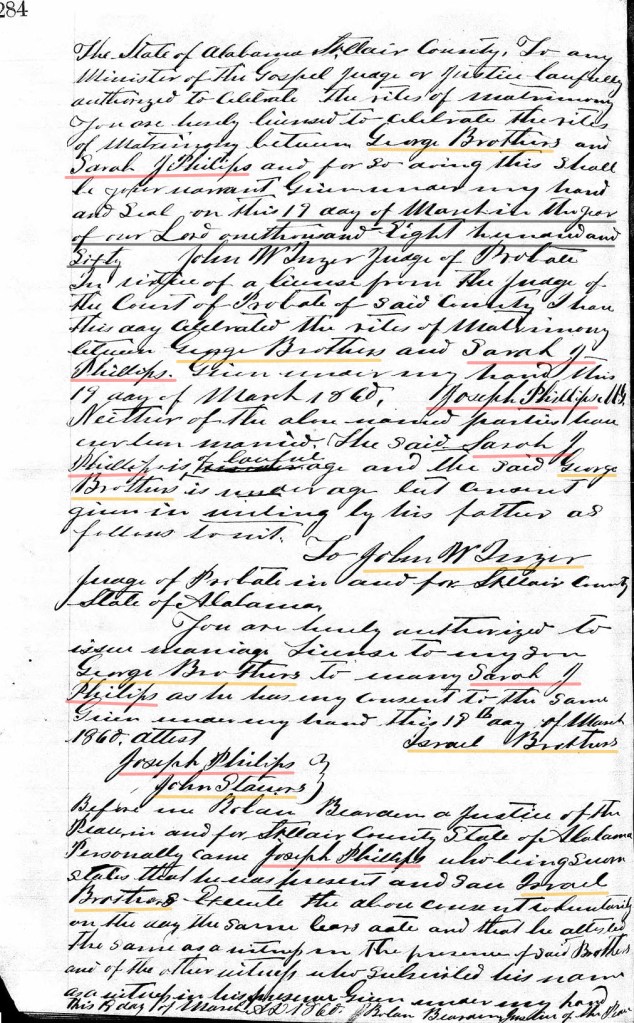 284
The State of Alabama St Clair County, To any
Minister of the Gospel Judge or Justice lawfully
authorized to celebrate the rites of matrimony
You are hereby licensed to celebrate the rites
of Matrimony between George Brothers and
Sarah J Philips and for so doing this shall
be your warrant Given under my hand
and Seal on this 19 day of March in the year
of our Lord one thousand Eight hundred and
Sixty John W Inzer Judge of Probate
In virtue of a license from the Judge of
the Court of Probate of Said County I have
this day celebrated the rites of Matrimony
between George Brothers and Sarah J
Phillips. Given under my hand this
19 day of March 1860. Joseph Phillips M.G.
Neither of the above named parties have
ever been married. The said Sarah J
Phillips is of lawful age and the said George
Brothers is under age but consent
given in writing by his father as
follows to wit.
To John W Inzer
Judge of Probate in and for St Clair County
State of Alabama,
You are hereby authorized to
issue marriage License to my son
George Brothers to marry Sarah J
Philips as he has my consent to the same
Given under my hand this 19th day of March
1860. attest Israel Brothers
Joseph Philips
John
Before me Bolan Bearden a Justice of the
Peace in and for St Clair County State of Alabama
Personally came Joseph Phillips who being sworn
states that he was present and saw Israel
Brothers Execute the above consent voluntarily
on the day the same bears date and that he attested
the same as a witness in the presence of said Brothers
and of the other witness who subscribed his name
as a witness in his presence Given under my hand
this day of March AD 1860. Bolan Bearden Justice of the Peace